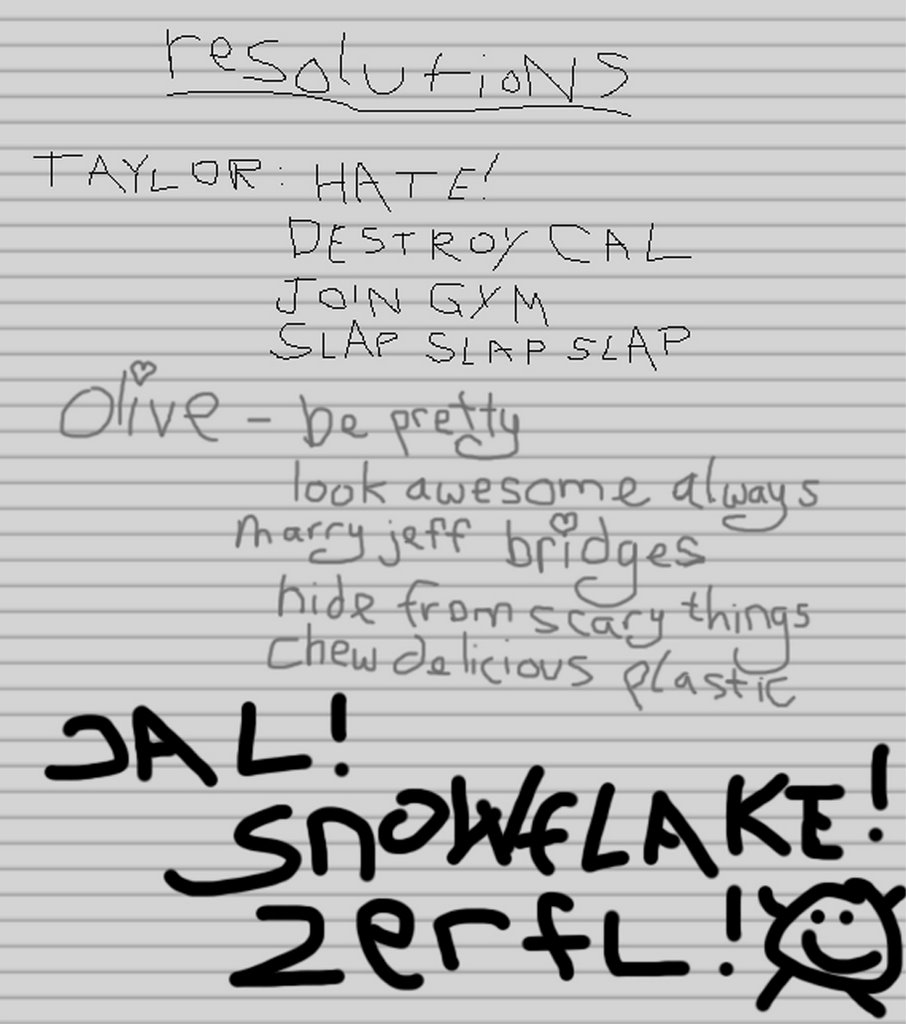 resolutioNS
TAYLOR: HATE!
DESTROY CAL
JOIN GYM
SLAP SLAP SLAP
Olive - be pretty
look awesome always
marry jeff bridges
hide from scary things
chew delicious plastic
JAL!
SnowfLAKE!
zerfL!